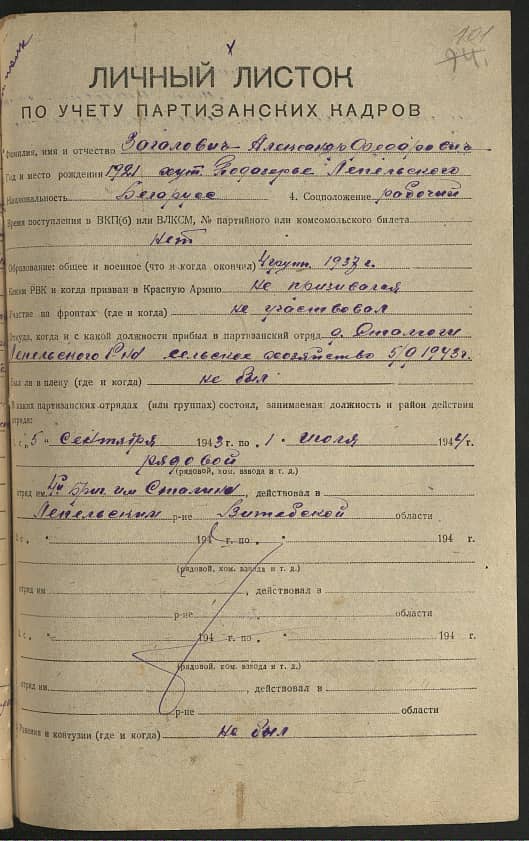 101
ЛИЧНЫЙ ЛИСТОК
ПО УЧЕТУ ПАРТИЗАНСКИХ КАДРОВ
Фамилия, имя и отчество Загалович Александр Федорович
Год и место рождения 1921 хут. Лепельского
Национальность Белорус 4. Соцположение рабочий
Время поступления в ВКП(б) или ВЛКСМ, № партийного или комсомольского билета
нет
Образование: общее и военное (что и когда окончил) 4 групп. 1937 г.
Каким РВК и когда призван в Красную Армию не призивался
Участие на фронтах (где и когда) не участвовал
Откуда, когда и с какой должности прибыл в партизанский отряд д.
Лепельского р-на сельское хозяйство 5/9 1943 г.
Был ли в плену (где и когда) не был
В каких партизанских отрядах (или группах) состоял, занимаемая должность и район действия
отряда:
с „5" сентября 1943 г. по „1" июля 1944 г.
рядовой
(рядовой, ком. взвода и т. д.)
отряд им. Бриг. им Сталина, действовал в
Лепельским р-не Витебской области
с „ " 194 г. по „ " 194 г.
(рядовой, ком. взвода и т. д.)
отряд им , действовал в
р-не области
с „ " 194 г. по „ " 194 г.
(рядовой, ком. взвода и т. д.)
отряд им. , действовал в
р-не области
Ранения и контузии (где и когда) не был